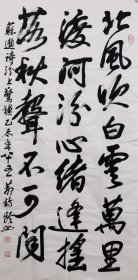 北風吹白雲萬里
渡河汾心緒逢搖
落秋聲不可聞
蘇頲詩汾上驚秋乙未年